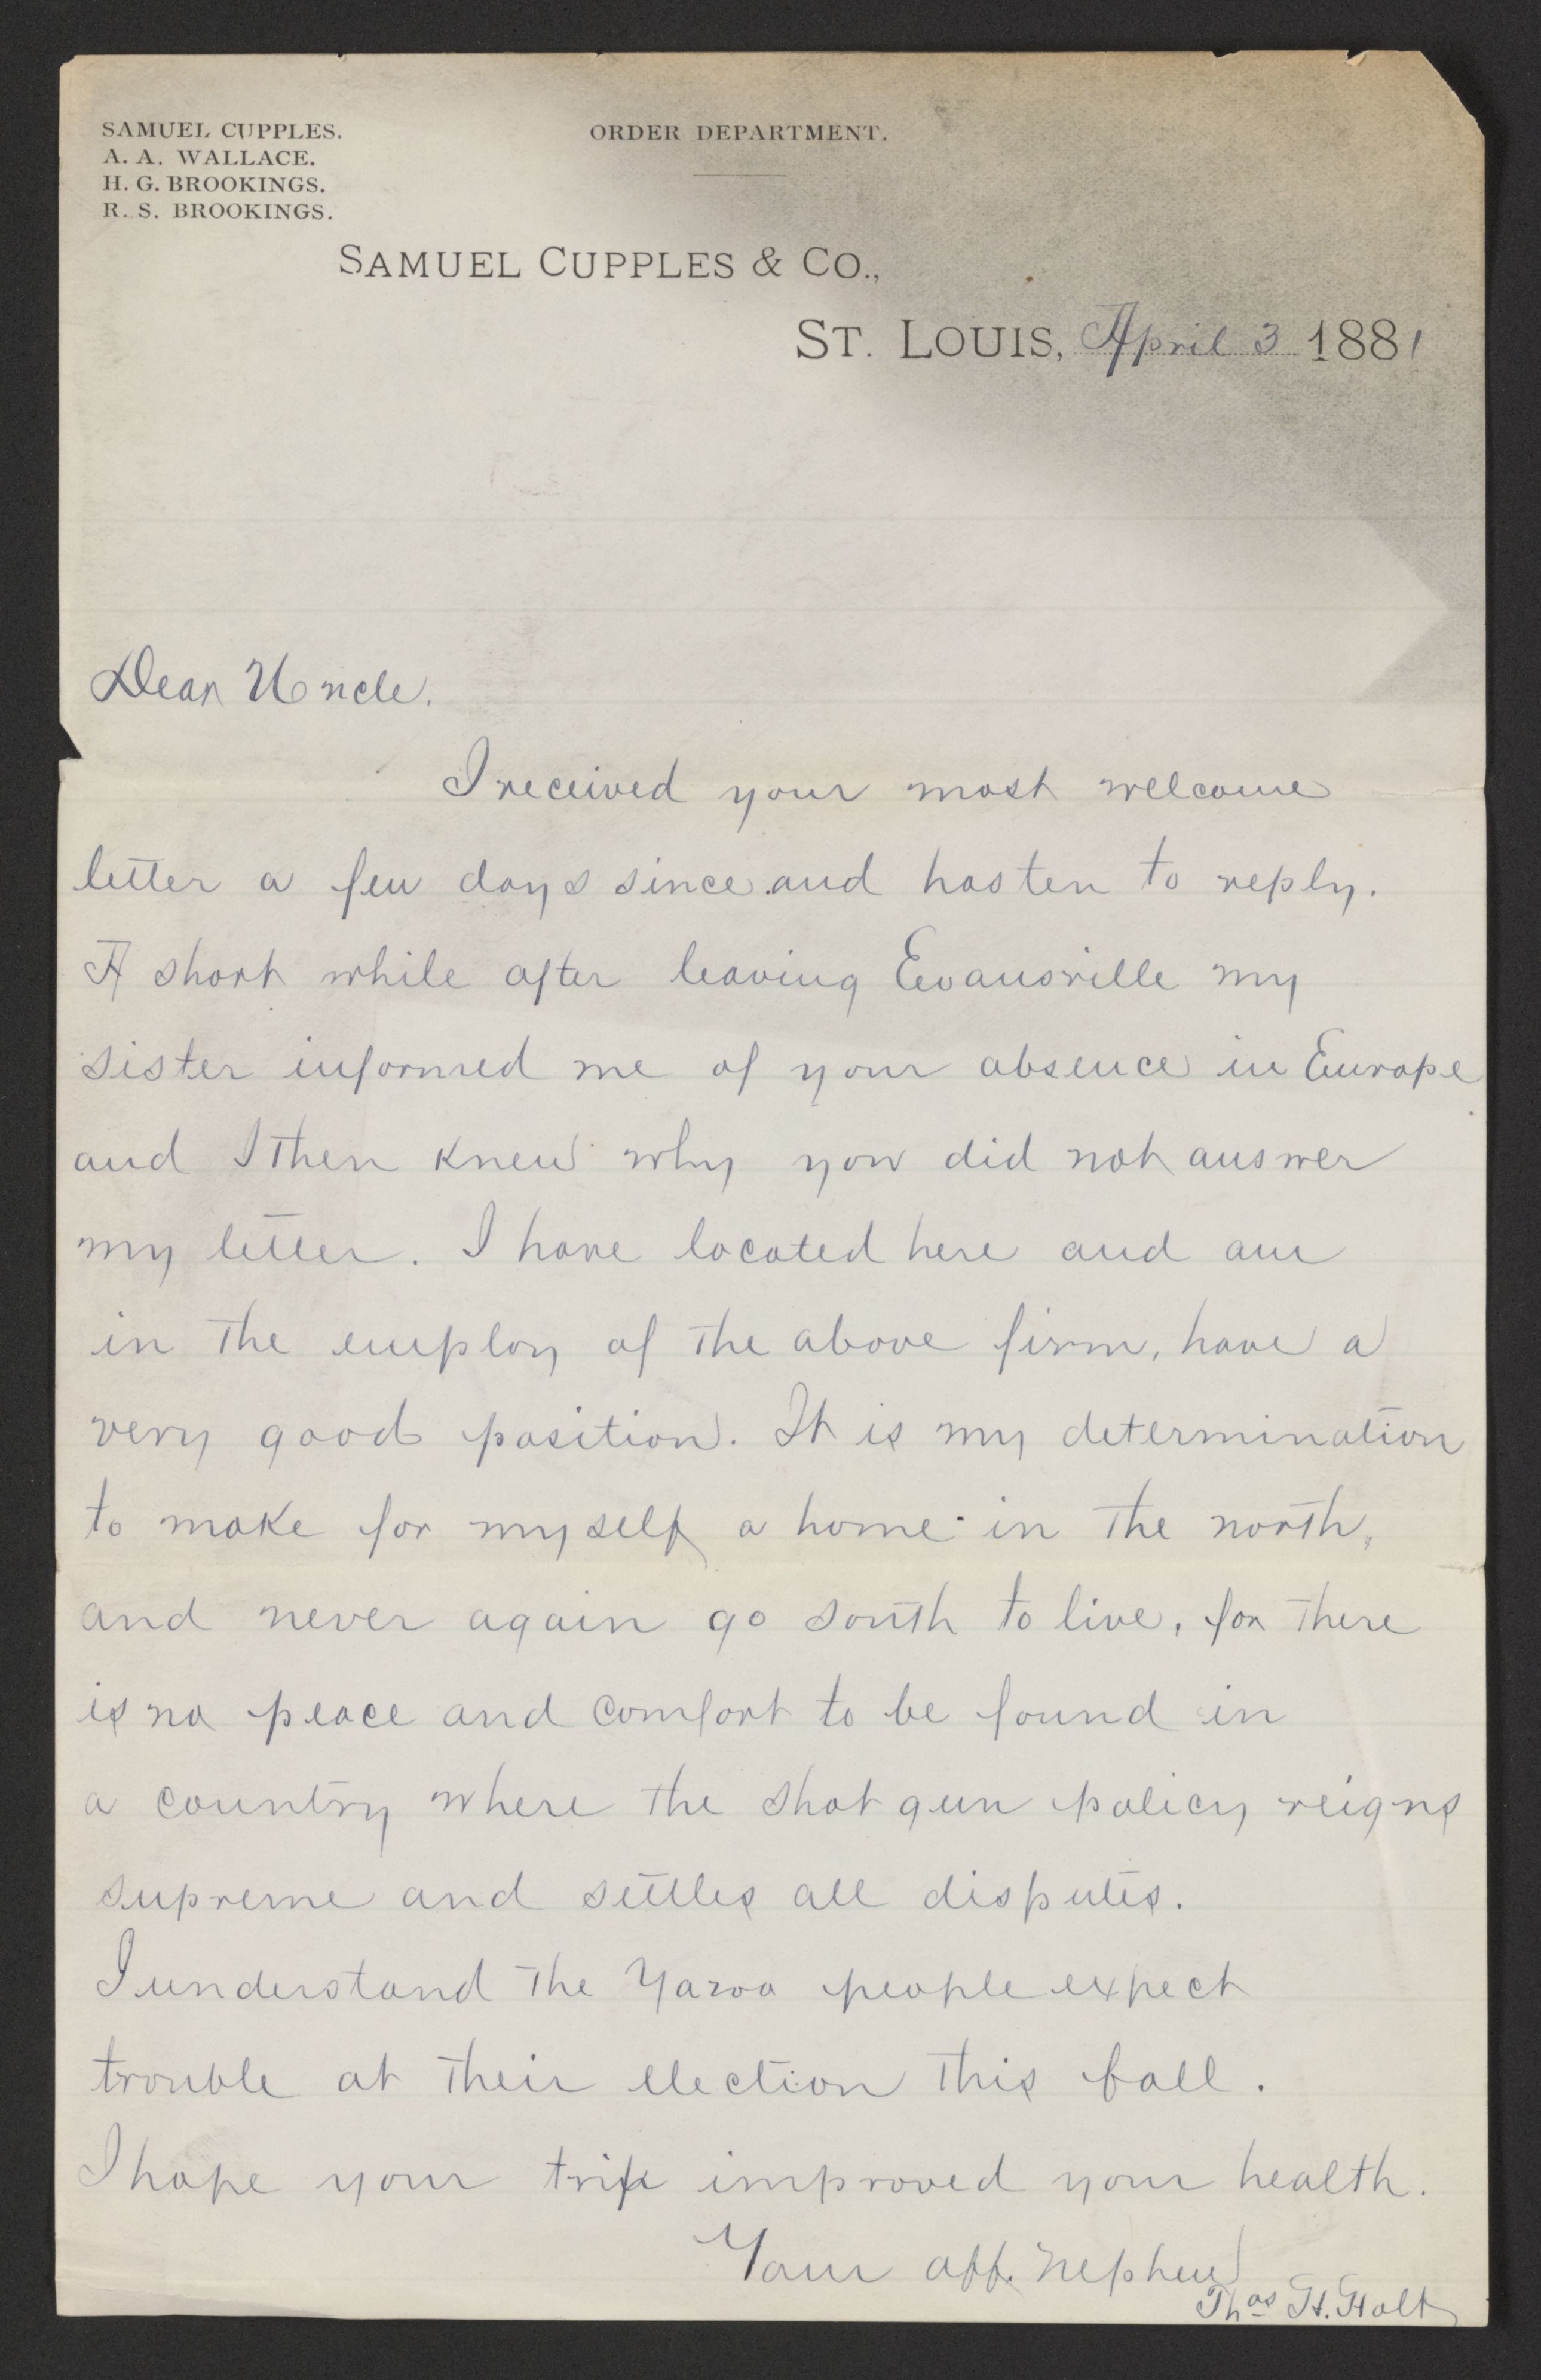 SAMUEL CUPPLES.
A. A. WALLACE.
H. G. BROOKINGS.
R. S. BROOKINGS.
ORDER DEPARTMENT.
SAMUEL CUPPLES & CO.,
ST. LOUIS, April 3 1881
Dear Uncle.
I received your most welcome
letter a few days since and hasten to reply.
A short while after leaving Evansville my
sister informed me of your absence in Europe
and I then knew why you did not answer
my letter. I have located here and am
in the employ of the above firm, have a
very good position. It is my determination
to make for myself a home in the north,
and never again go south to live, for there
is no peace and comfort to be found in
a country where the shot gun policy reigns
supreme and settles all disputes.
I understand the Yazoo people expect
trouble at their election this fall.
I hope your trip improved your health.
Your aff. nephew
Thos H. Holt